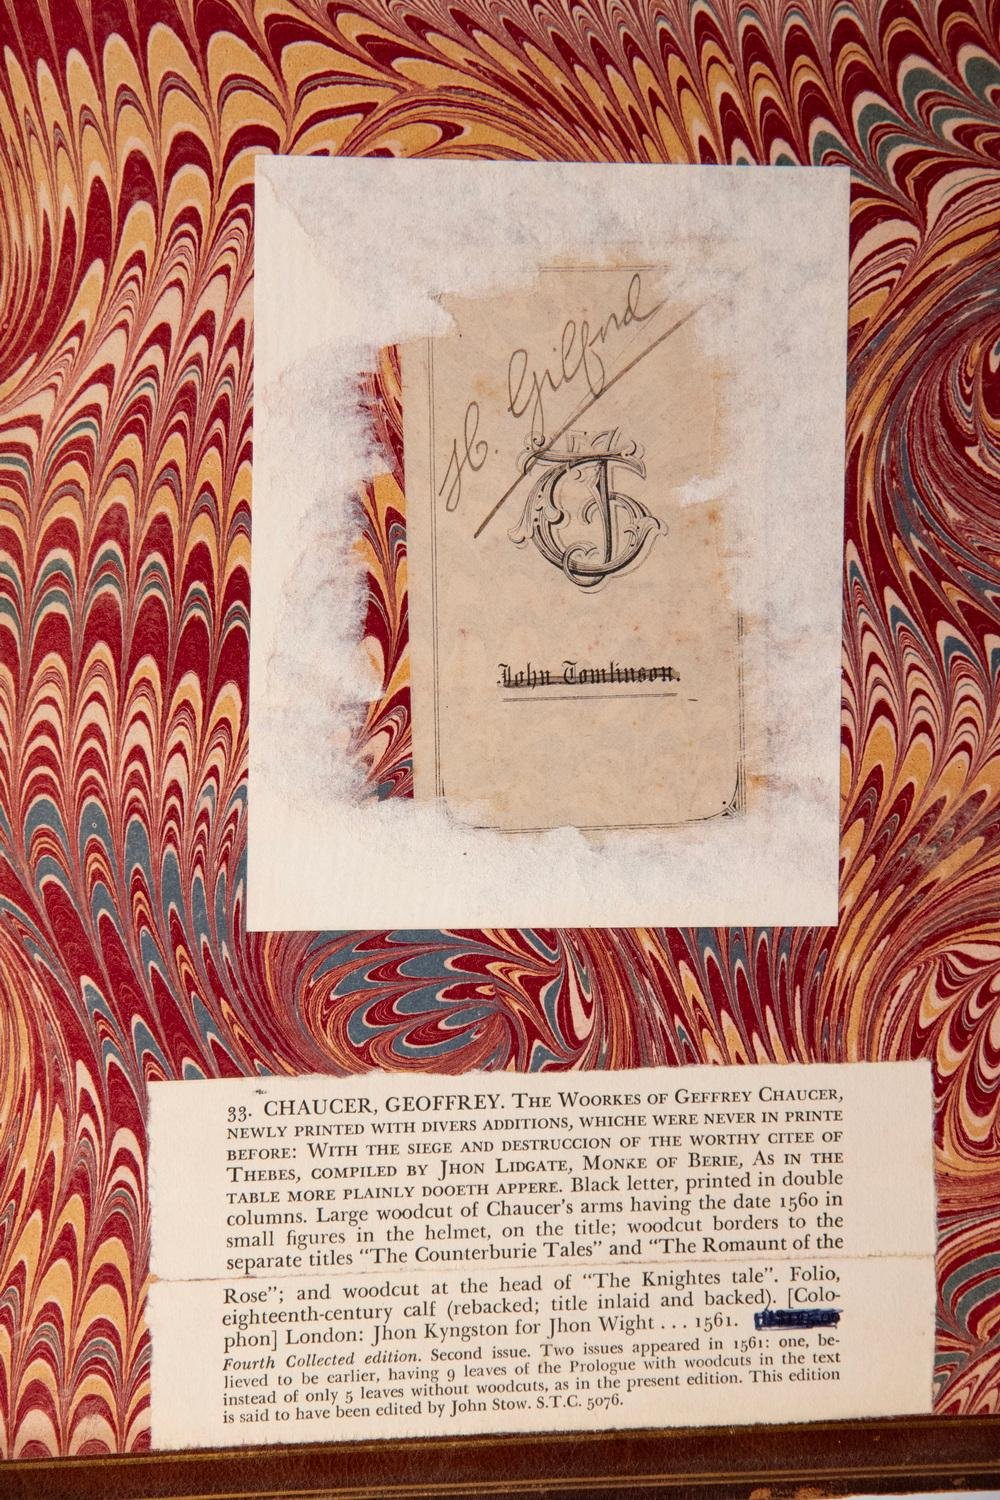 H. Gilford
JT
John Tomlinson.
33. CHAUCER, GEOFFREY. THE WOORKES OF GEFFREY CHAUCER,
NEWLY PRINTED WITH DIVERS ADDITIONS, WHICHE WERE NEVER IN PRINTE
BEFORE: WITH THE SIEGE AND DESTRUCCION OF THE WORTHY CITEE OF
THEBES, COMPILED BY JHON LIDGATE, MONKE OF BERIE, AS IN THE
TABLE MORE PLAINLY DOOETH APPERE. Black letter, printed in double
columns. Large woodcut of Chaucer's arms having the date 1560 in
small figures in the helmet, on the title; woodcut borders to the
separate titles "The Counterburie Tales" and "The Romaunt of the
Rose"; and woodcut at the head of "The Knightes tale". Folio,
eighteenth-century calf (rebacked; title inlaid and backed). [Colo-
phon] London: Jhon Kyngston for Jhon Wight . . . 1561.
Fourth Collected edition. Second issue. Two issues appeared in 1561: one, be-
lieved to be earlier, having 9 leaves of the Prologue with woodcuts in the text
instead of only 5 leaves without woodcuts, as in the present edition. This edition
is said to have been edited by John Stow. S.T.C. 5076.